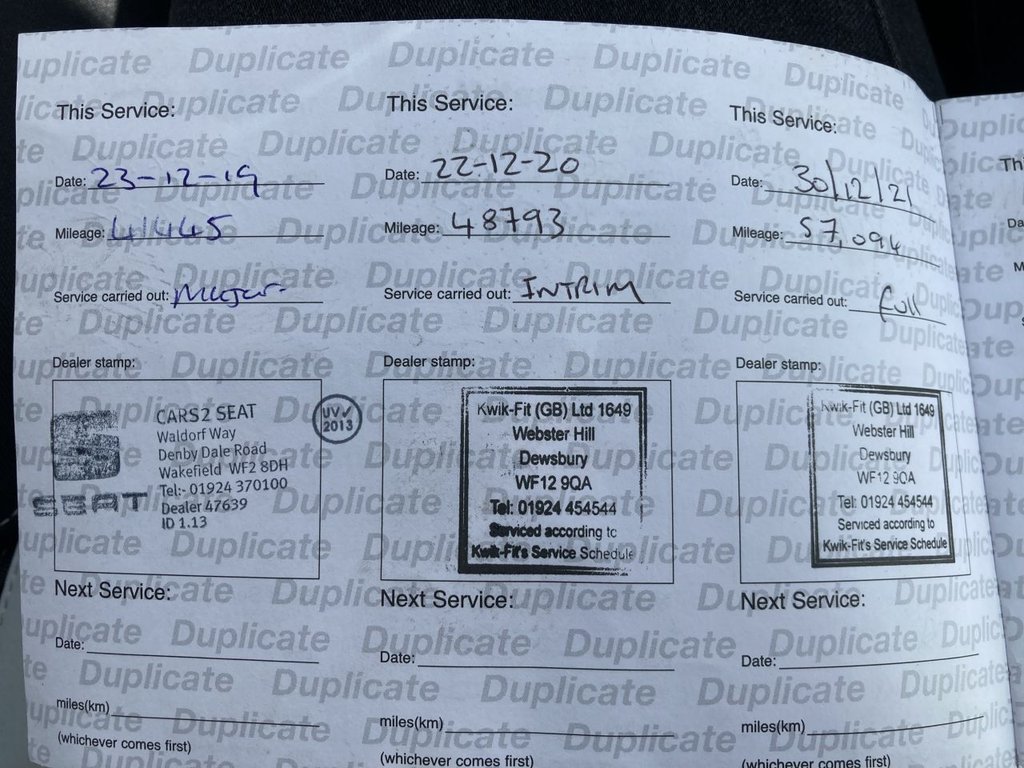 This Service:
Date: 23-12-19
Mileage: 41445
Service carried out: Major
Dealer stamp:
SEAT
CARS2 SEAT
Waldorf Way
Denby Dale Road
Wakefield WF2 8DH
Tel:- 01924 370100
Dealer 47639
ID 1.13
UV✓
2013
Next Service:
Date:
miles(km)
(whichever comes first)
This Service:
Date: 22-12-20
Mileage: 48793
Service carried out: INTRIM
Dealer stamp:
Kwik-Fit (GB) Ltd 1649
Webster Hill
Dewsbury
WF12 9QA
Tel: 01924 454544
Serviced according to
Kwik-Fit's Service Schedule
Next Service:
Date:
miles(km)
(whichever comes first)
This Service:
Date: 30/12/21
Mileage: 57,094
Service carried out: full
Dealer stamp:
Kwik-Fit (GB) Ltd 1649
Webster Hill
Dewsbury
WF12 9QA
Tel: 01924 454544
Serviced according to
Kwik-Fit's Service Schedule
Next Service:
Date:
miles(km)
(whichever comes first)
Duplicate